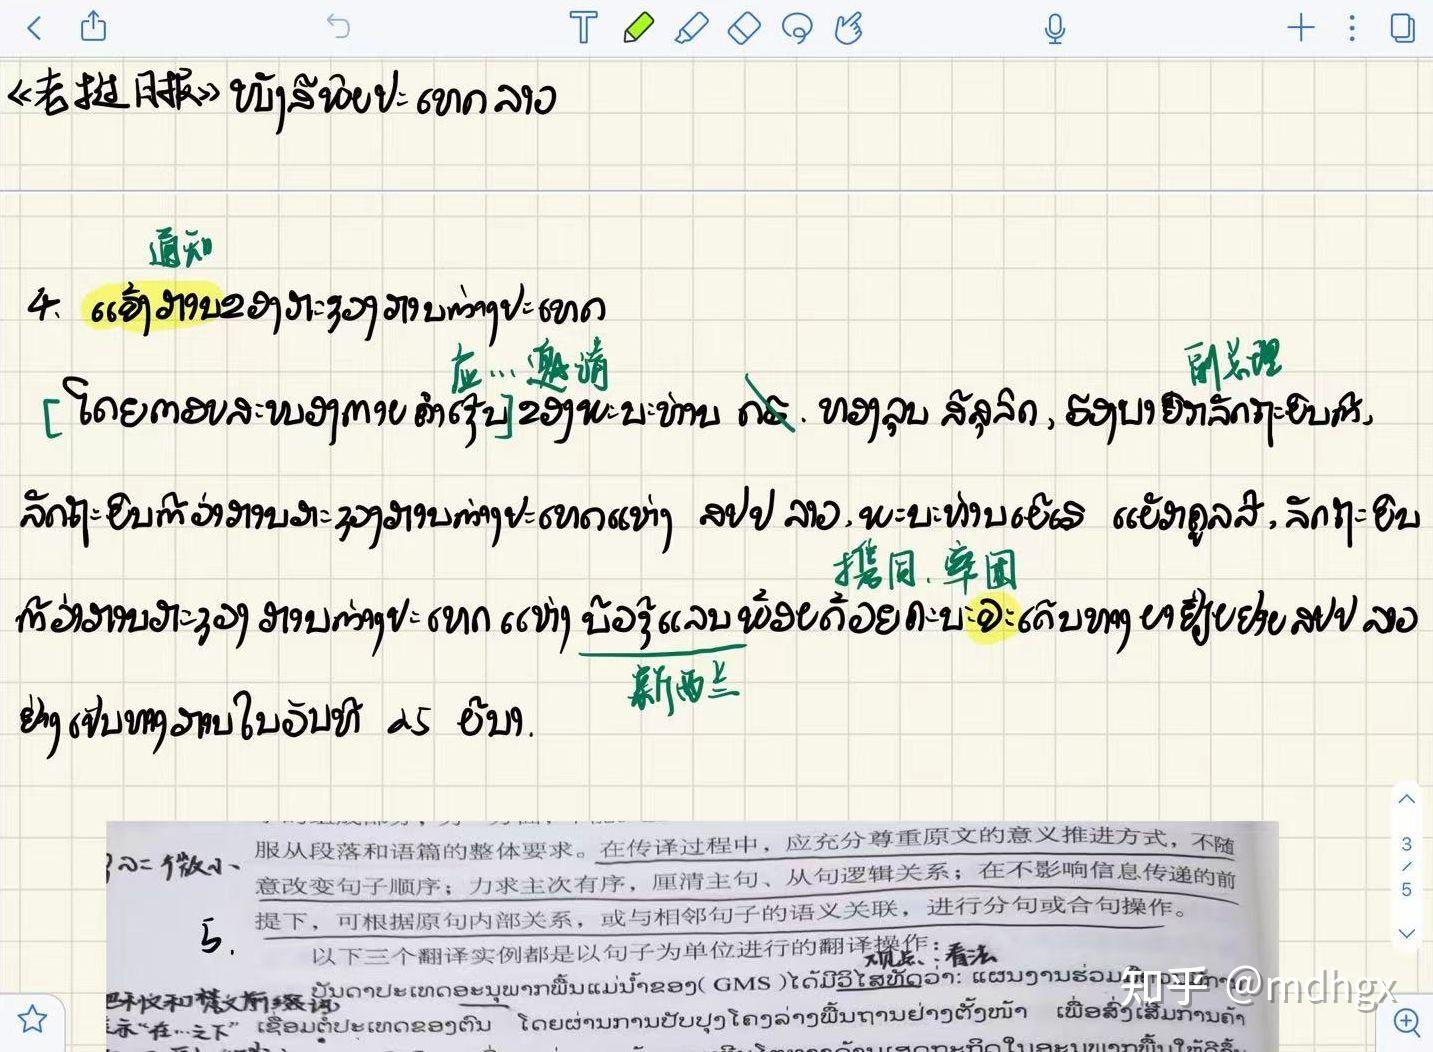 《老挝日报》 ໜັງສືພິມປະເທດລາວ
通知
4. ແຈ້ງການຂອງກະຊວງການຕ່າງປະເທດ
应… 邀请
副总理
[ໂດຍຕອບສະໜອງຕາມຄຳເຊີນ]ຂອງພະນະທ່ານ ດຣ. ທອງລຸນ ສີສຸລິດ, ຮອງນາຍົກລັດຖະມົນຕີ,
ລັດຖະມົນຕີວ່າການກະຊວງການຕ່າງປະເທດແຫ່ງ ສປປ ລາວ, ພະນະທ່ານ ລັດຖະມົນ
携同、率团
ຕີວ່າການກະຊວງ ການຕ່າງປະເທດ ແຫ່ງ ນິວຊີແລນ ພ້ອມດ້ວຍຄະນະຈະເດີນທາງ ມາຢ້ຽມຢາມ ສປປ ລາວ
新西兰
ຢ່າງເປັນທາງການໃນວັນທີ 25 ມີນາ.
3
/
5
服从段落和语篇的整体要求。在传译过程中，应充分尊重原文的意义推进方式，不随
个微小
意改变句子顺序；力求主次有序，厘清主句、从句逻辑关系；在不影响信息传递的前
提下，可根据原句内部关系，或与相邻句子的语义关联，进行分句或合句操作。
5.
以下三个翻译实例都是以句子为单位进行的翻译操作：
观点、看法
ບັນດາປະເທດອະນຸພາກພື້ນແມ່ນ້ຳຂອງ( GMS )ໄດ້ມີວິໄສທັດວ່າ: ແຜນງານຮ່ວມ
示“在…之下”
ເຊື່ອມຕໍ່ປະເທດຂອງຕົນ ໂດຍຜ່ານການປັບປຸງໂຄງລ່າງພື້ນຖານຢ່າງຕັ້ງໜ້າ ເພື່ອສົ່ງເສີມການຄ້າ
知乎 @mdhgx